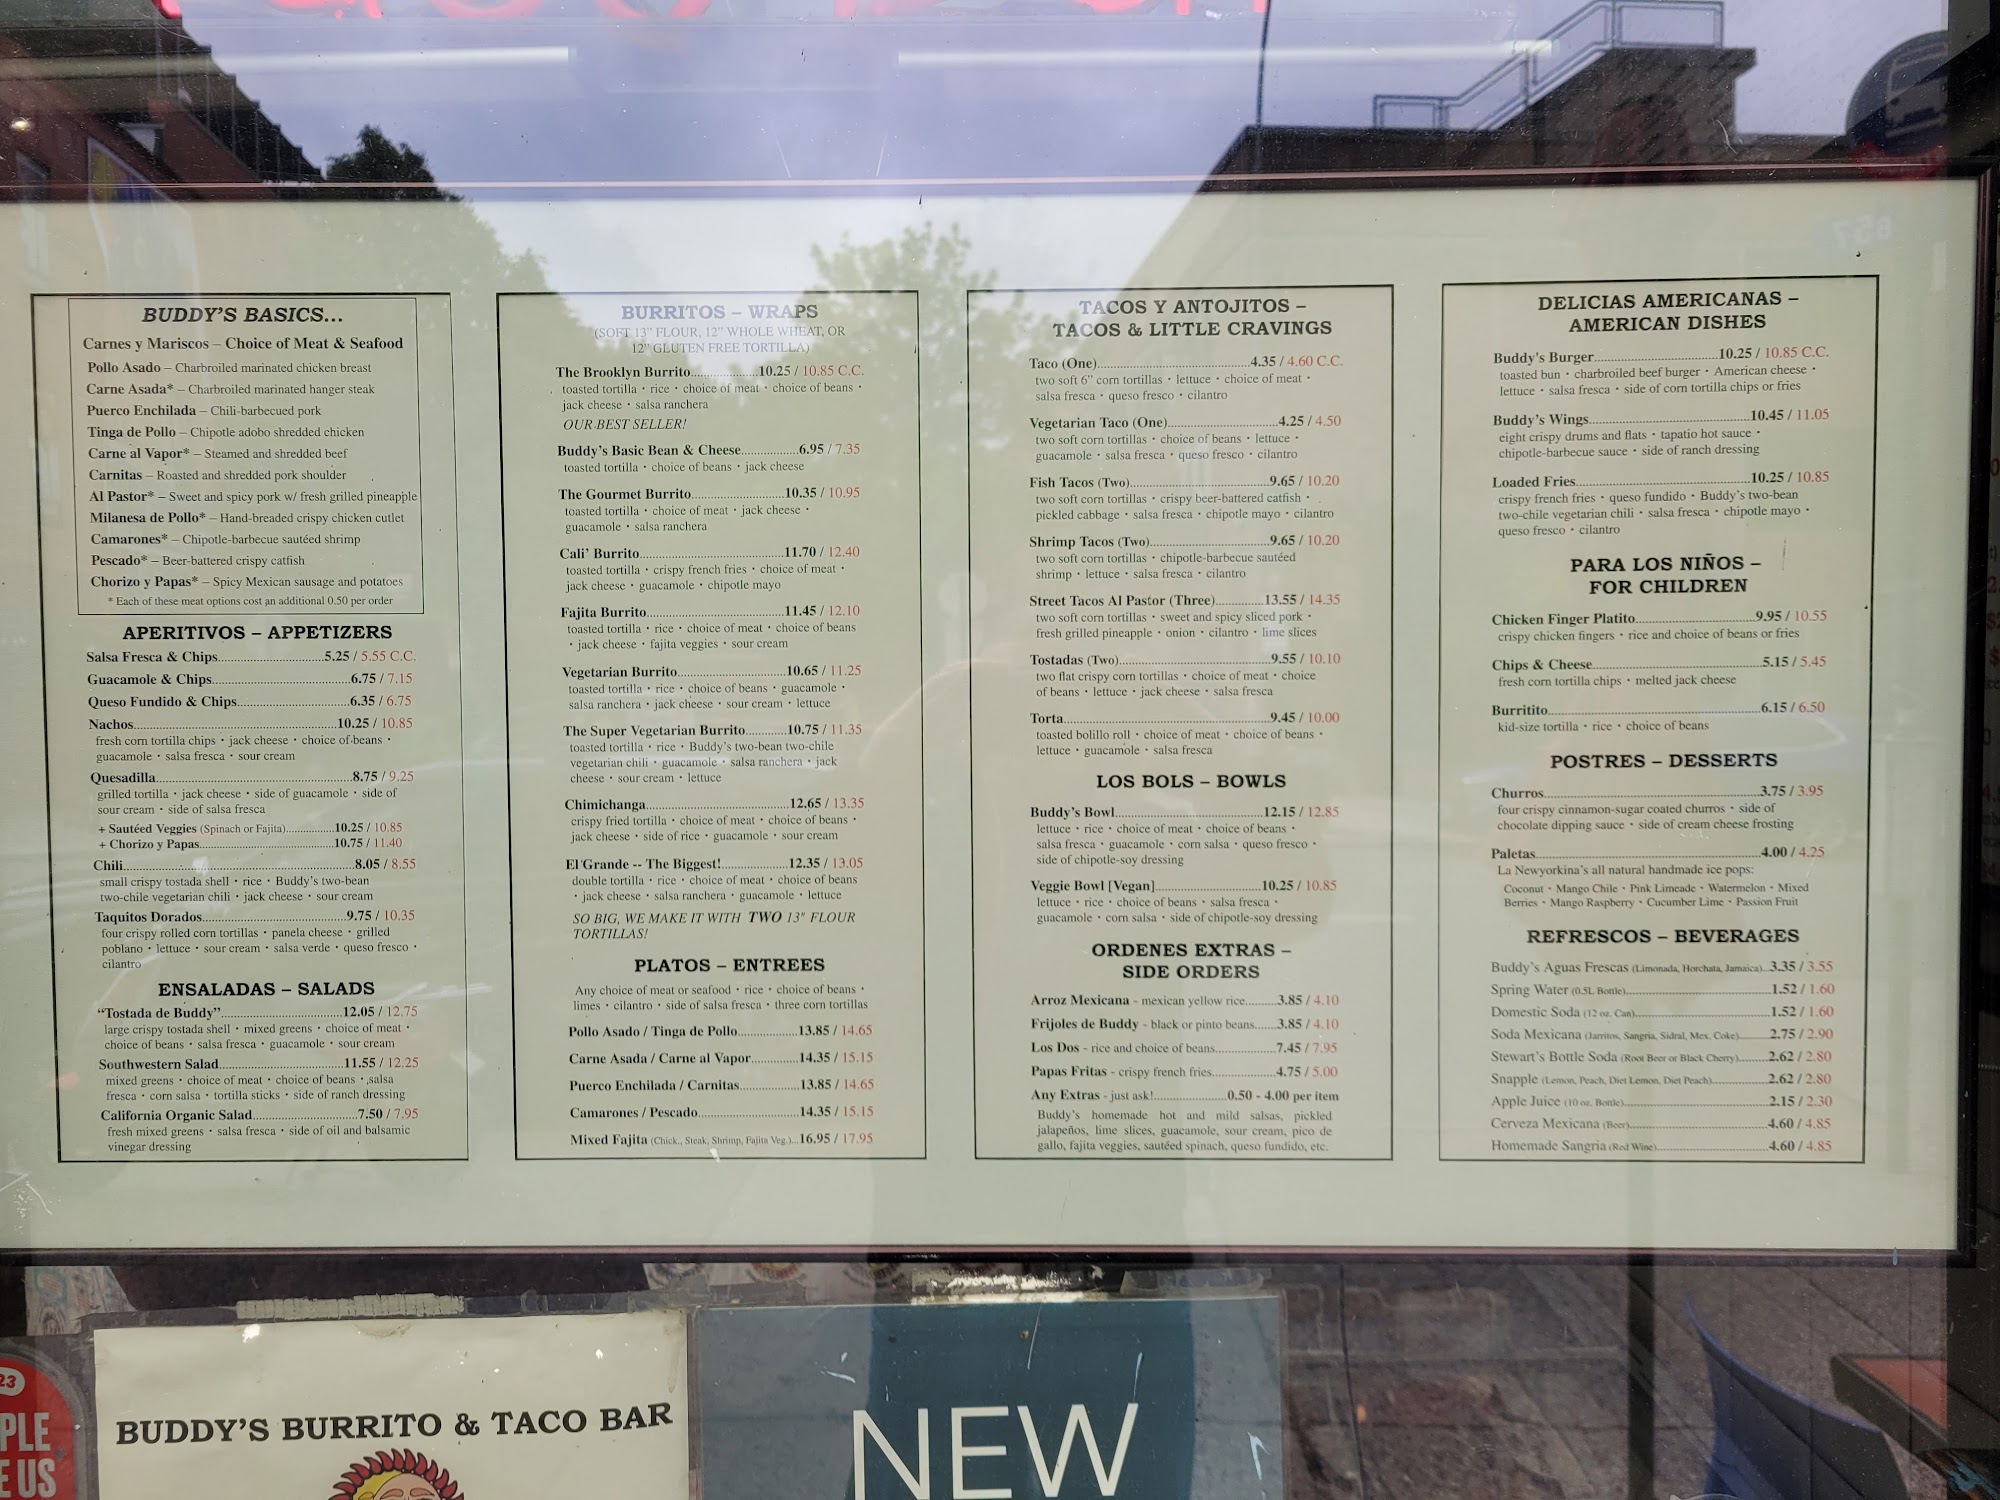 BUDDY'S BASICS...
Carnes y Mariscos – Choice of Meat & Seafood
Pollo Asado – Charbroiled marinated chicken breast
Carne Asada* – Charbroiled marinated hanger steak
Puerco Enchilada – Chili-barbecued pork
Tinga de Pollo – Chipotle adobo shredded chicken
Carne al Vapor* – Steamed and shredded beef
Carnitas – Roasted and shredded pork shoulder
Al Pastor* – Sweet and spicy pork w/ fresh grilled pineapple
Milanesa de Pollo* – Hand-breaded crispy chicken cutlet
Camarones* – Chipotle-barbecue sautéed shrimp
Pescado* – Beer-battered crispy catfish
Chorizo y Papas* – Spicy Mexican sausage and potatoes
* Each of these meat options cost an additional 0.50 per order
APERITIVOS – APPETIZERS
Salsa Fresca & Chips...5.25 / 5.55 C.C.
Guacamole & Chips...6.75 / 7.15
Queso Fundido & Chips...6.35 / 6.75
Nachos...10.25 / 10.85
fresh corn tortilla chips • jack cheese • choice of beans •
guacamole • salsa fresca • sour cream
Quesadilla...8.75 / 9.25
grilled tortilla • jack cheese • side of guacamole • side of
sour cream • side of salsa fresca
+ Sautéed Veggies (Spinach or Fajita)...10.25 / 10.85
+ Chorizo y Papas...10.75 / 11.40
Chili...8.05 / 8.55
small crispy tostada shell • rice • Buddy's two-bean
two-chile vegetarian chili • jack cheese • sour cream
Taquitos Dorados...9.75 / 10.35
four crispy rolled corn tortillas • panela cheese • grilled
poblano • lettuce • sour cream • salsa verde • queso fresco •
cilantro
ENSALADAS – SALADS
"Tostada de Buddy"...12.05 / 12.75
large crispy tostada shell • mixed greens • choice of meat •
choice of beans • salsa fresca • guacamole • sour cream
Southwestern Salad...11.55 / 12.25
mixed greens • choice of meat • choice of beans • salsa
fresca • corn salsa • tortilla sticks • side of ranch dressing
California Organic Salad...7.50 / 7.95
fresh mixed greens • salsa fresca • side of oil and balsamic
vinegar dressing
BURRITOS – WRAPS
(SOFT 13" FLOUR, 12" WHOLE WHEAT, OR
12" GLUTEN FREE TORTILLA)
The Brooklyn Burrito...10.25 / 10.85 C.C.
toasted tortilla • rice • choice of meat • choice of beans •
jack cheese • salsa ranchera
OUR BEST SELLER!
Buddy's Basic Bean & Cheese...6.95 / 7.35
toasted tortilla • choice of beans • jack cheese
The Gourmet Burrito...10.35 / 10.95
toasted tortilla • choice of meat • jack cheese •
guacamole • salsa ranchera
Cali' Burrito...11.70 / 12.40
toasted tortilla • crispy french fries • choice of meat •
jack cheese • guacamole • chipotle mayo
Fajita Burrito...11.45 / 12.10
toasted tortilla • rice • choice of meat • choice of beans
• jack cheese • fajita veggies • sour cream
Vegetarian Burrito...10.65 / 11.25
toasted tortilla • rice • choice of beans • guacamole •
salsa ranchera • jack cheese • sour cream • lettuce
The Super Vegetarian Burrito...10.75 / 11.35
toasted tortilla • rice • Buddy's two-bean two-chile
vegetarian chili • guacamole • salsa ranchera • jack
cheese • sour cream • lettuce
Chimichanga...12.65 / 13.35
crispy fried tortilla • choice of meat • choice of beans •
jack cheese • side of rice • guacamole • sour cream
El Grande -- The Biggest!...12.35 / 13.05
double tortilla • rice • choice of meat • choice of beans
• jack cheese • salsa ranchera • guacamole • lettuce
SO BIG, WE MAKE IT WITH TWO 13" FLOUR
TORTILLAS!
PLATOS – ENTREES
Any choice of meat or seafood • rice • choice of beans •
limes • cilantro • side of salsa fresca • three corn tortillas
Pollo Asado / Tinga de Pollo...13.85 / 14.65
Carne Asada / Carne al Vapor...14.35 / 15.15
Puerco Enchilada / Carnitas...13.85 / 14.65
Camarones / Pescado...14.35 / 15.15
Mixed Fajita (Chick., Steak, Shrimp, Fajita Veg.)...16.95 / 17.95
TACOS Y ANTOJITOS –
TACOS & LITTLE CRAVINGS
Taco (One)...4.35 / 4.60 C.C.
two soft 6" corn tortillas • lettuce • choice of meat •
salsa fresca • queso fresco • cilantro
Vegetarian Taco (One)...4.25 / 4.50
two soft corn tortillas • choice of beans • lettuce •
guacamole • salsa fresca • queso fresco • cilantro
Fish Tacos (Two)...9.65 / 10.20
two soft corn tortillas • crispy beer-battered catfish •
pickled cabbage • salsa fresca • chipotle mayo • cilantro
Shrimp Tacos (Two)...9.65 / 10.20
two soft corn tortillas • chipotle-barbecue sautéed
shrimp • lettuce • salsa fresca • cilantro
Street Tacos Al Pastor (Three)...13.55 / 14.35
two soft corn tortillas • sweet and spicy sliced pork •
fresh grilled pineapple • onion • cilantro • lime slices
Tostadas (Two)...9.55 / 10.10
two flat crispy corn tortillas • choice of meat • choice
of beans • lettuce • jack cheese • salsa fresca
Torta...9.45 / 10.00
toasted bolillo roll • choice of meat • choice of beans •
lettuce • guacamole • salsa fresca
LOS BOLS – BOWLS
Buddy's Bowl...12.15 / 12.85
lettuce • rice • choice of meat • choice of beans •
salsa fresca • guacamole • corn salsa • queso fresco •
side of chipotle-soy dressing
Veggie Bowl [Vegan]...10.25 / 10.85
lettuce • rice • choice of beans • salsa fresca •
guacamole • corn salsa • side of chipotle-soy dressing
ORDENES EXTRAS –
SIDE ORDERS
Arroz Mexicana - mexican yellow rice...3.85 / 4.10
Frijoles de Buddy - black or pinto beans...3.85 / 4.10
Los Dos - rice and choice of beans...7.45 / 7.95
Papas Fritas - crispy french fries...4.75 / 5.00
Any Extras - just ask!...0.50 - 4.00 per item
Buddy's homemade hot and mild salsas, pickled
jalapeños, lime slices, guacamole, sour cream, pico de
gallo, fajita veggies, sautéed spinach, queso fundido, etc.
DELICIAS AMERICANAS –
AMERICAN DISHES
Buddy's Burger...10.25 / 10.85 C.C.
toasted bun • charbroiled beef burger • American cheese •
lettuce • salsa fresca • side of corn tortilla chips or fries
Buddy's Wings...10.45 / 11.05
eight crispy drums and flats • tapatio hot sauce •
chipotle-barbecue sauce • side of ranch dressing
Loaded Fries...10.25 / 10.85
crispy french fries • queso fundido • Buddy's two-bean
two-chile vegetarian chili • salsa fresca • chipotle mayo •
queso fresco • cilantro
PARA LOS NIÑOS –
FOR CHILDREN
Chicken Finger Platito...9.95 / 10.55
crispy chicken fingers • rice and choice of beans or fries
Chips & Cheese...5.15 / 5.45
fresh corn tortilla chips • melted jack cheese
Burritito...6.15 / 6.50
kid-size tortilla • rice • choice of beans
POSTRES – DESSERTS
Churros...3.75 / 3.95
four crispy cinnamon-sugar coated churros • side of
chocolate dipping sauce • side of cream cheese frosting
Paletas...4.00 / 4.25
La Newyorkina's all natural handmade ice pops:
Coconut • Mango Chile • Pink Limeade • Watermelon • Mixed
Berries • Mango Raspberry • Cucumber Lime • Passion Fruit
REFRESCOS – BEVERAGES
Buddy's Aguas Frescas (Limonada, Horchata, Jamaica)...3.35 / 3.55
Spring Water (0.5L Bottle)...1.52 / 1.60
Domestic Soda (12 oz. Can)...1.52 / 1.60
Soda Mexicana (Jarritos, Sangria, Sidral, Mex. Coke)...2.75 / 2.90
Stewart's Bottle Soda (Root Beer or Black Cherry)...2.62 / 2.80
Snapple (Lemon, Peach, Diet Lemon, Diet Peach)...2.62 / 2.80
Apple Juice (10 oz. Bottle)...2.15 / 2.30
Cerveza Mexicana (Beer)...4.60 / 4.85
Homemade Sangria (Red Wine)...4.60 / 4.85
BUDDY'S BURRITO & TACO BAR
NEW
23
PLE
E US